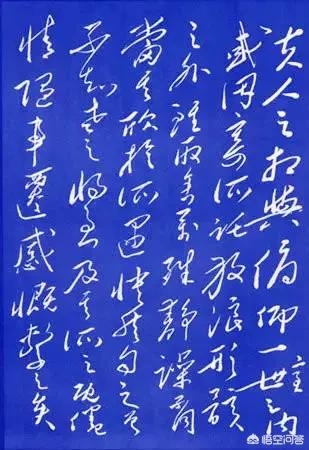 夫人之相與俯仰一世室之內
或因寄所託放浪形骸
之外雖取舍萬殊靜躁
當其欣於所遇快然自足
不知老之將至及其所之既倦
情隨事遷感慨繫之矣
悟空问答